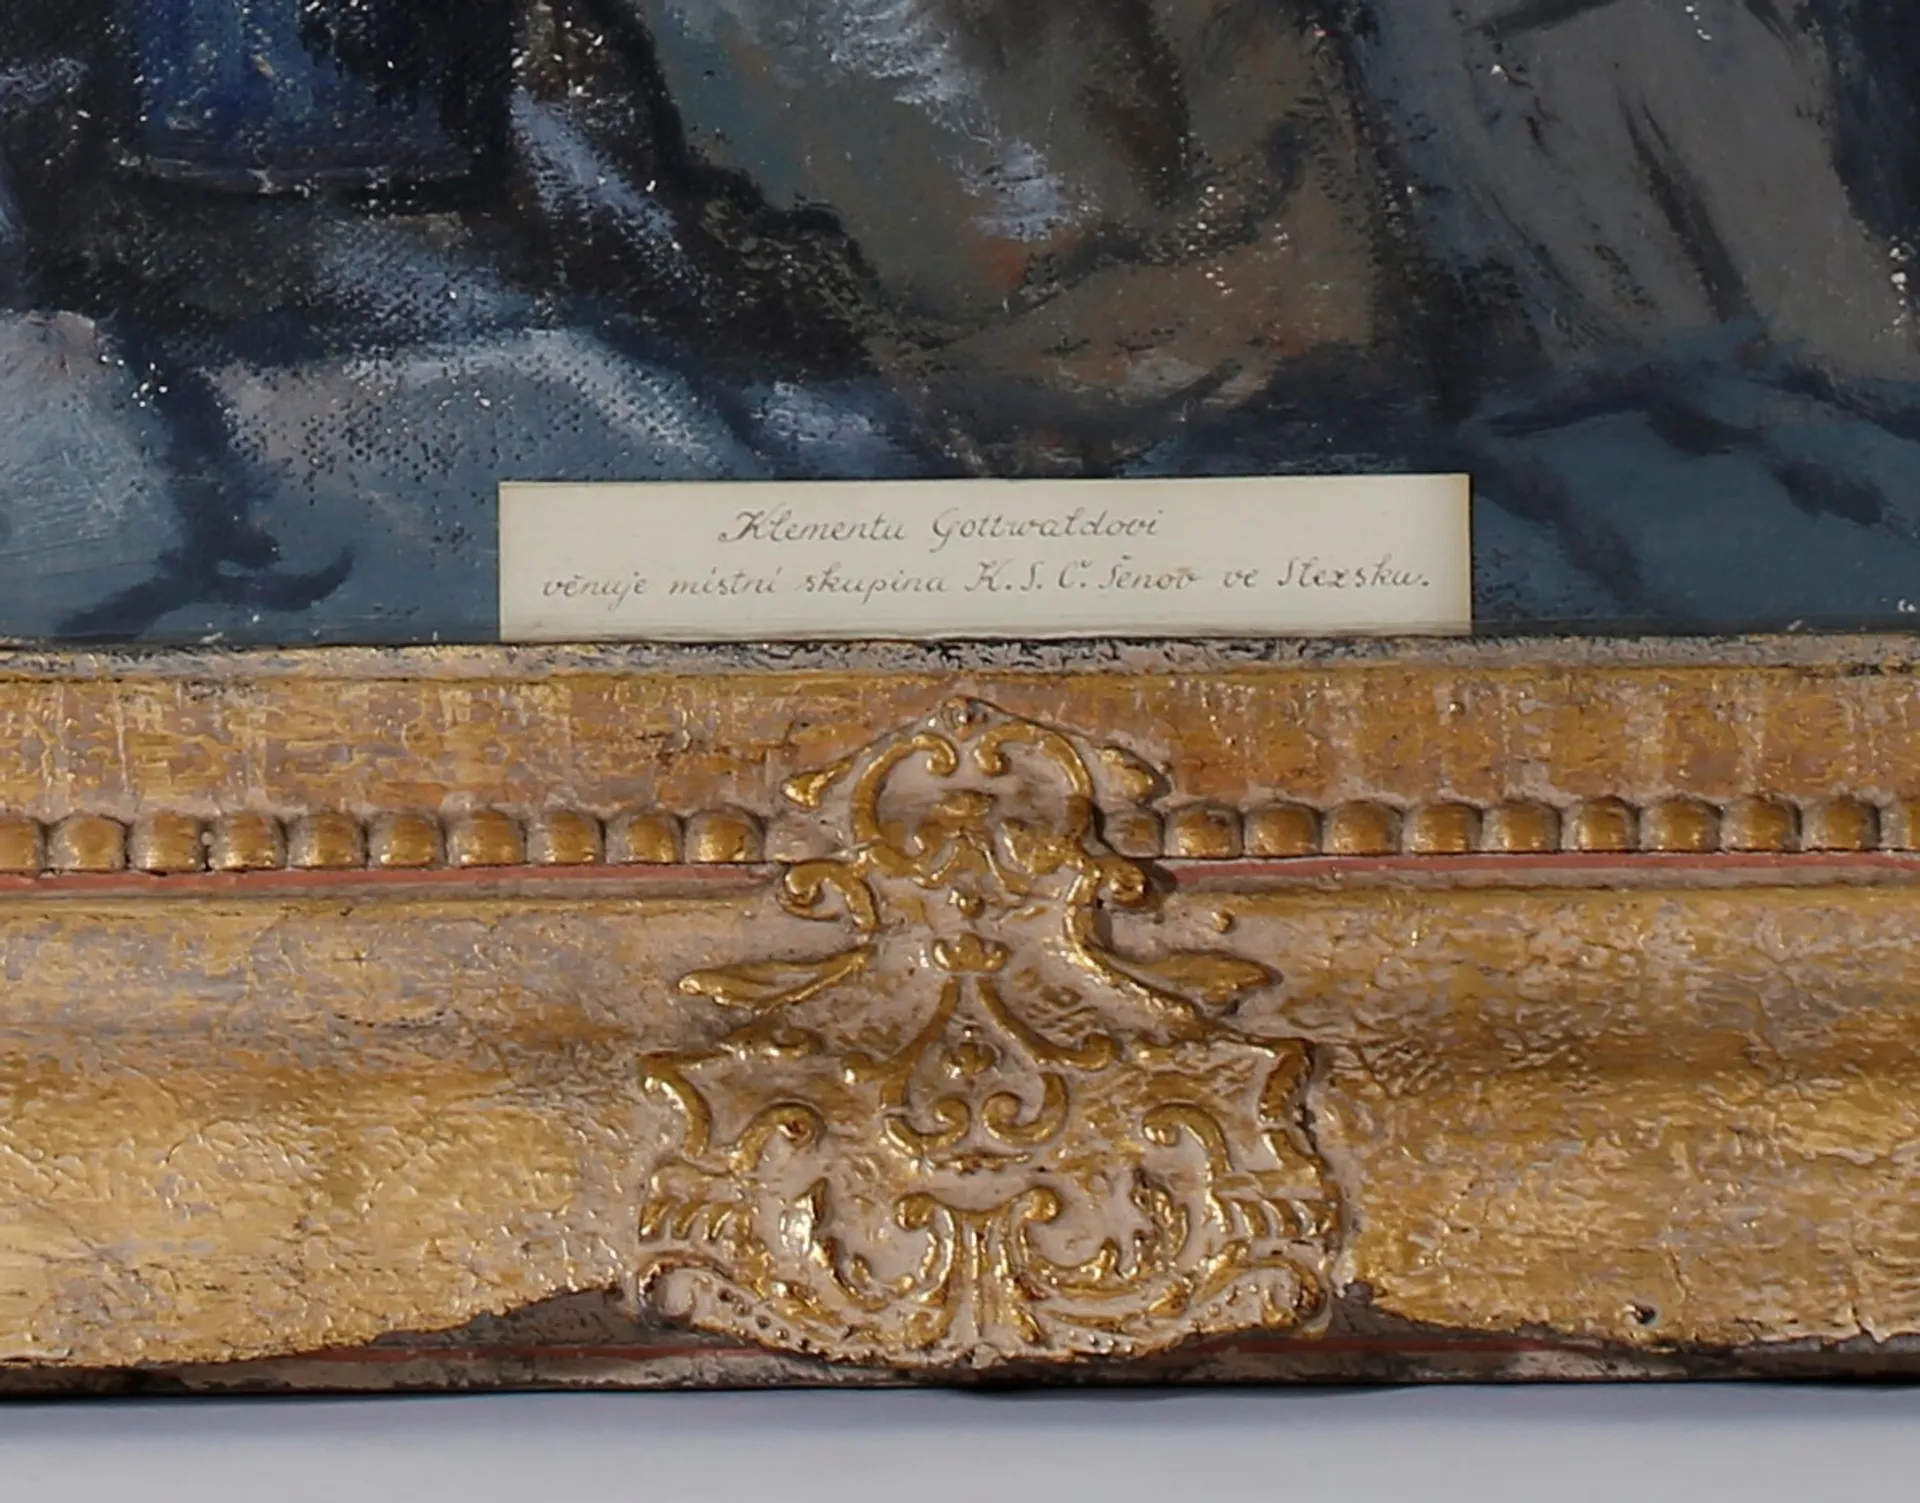 Klementu Gottwaldovi
věnuje místní skupina K. S. Č. Šenov ve Slezsku.